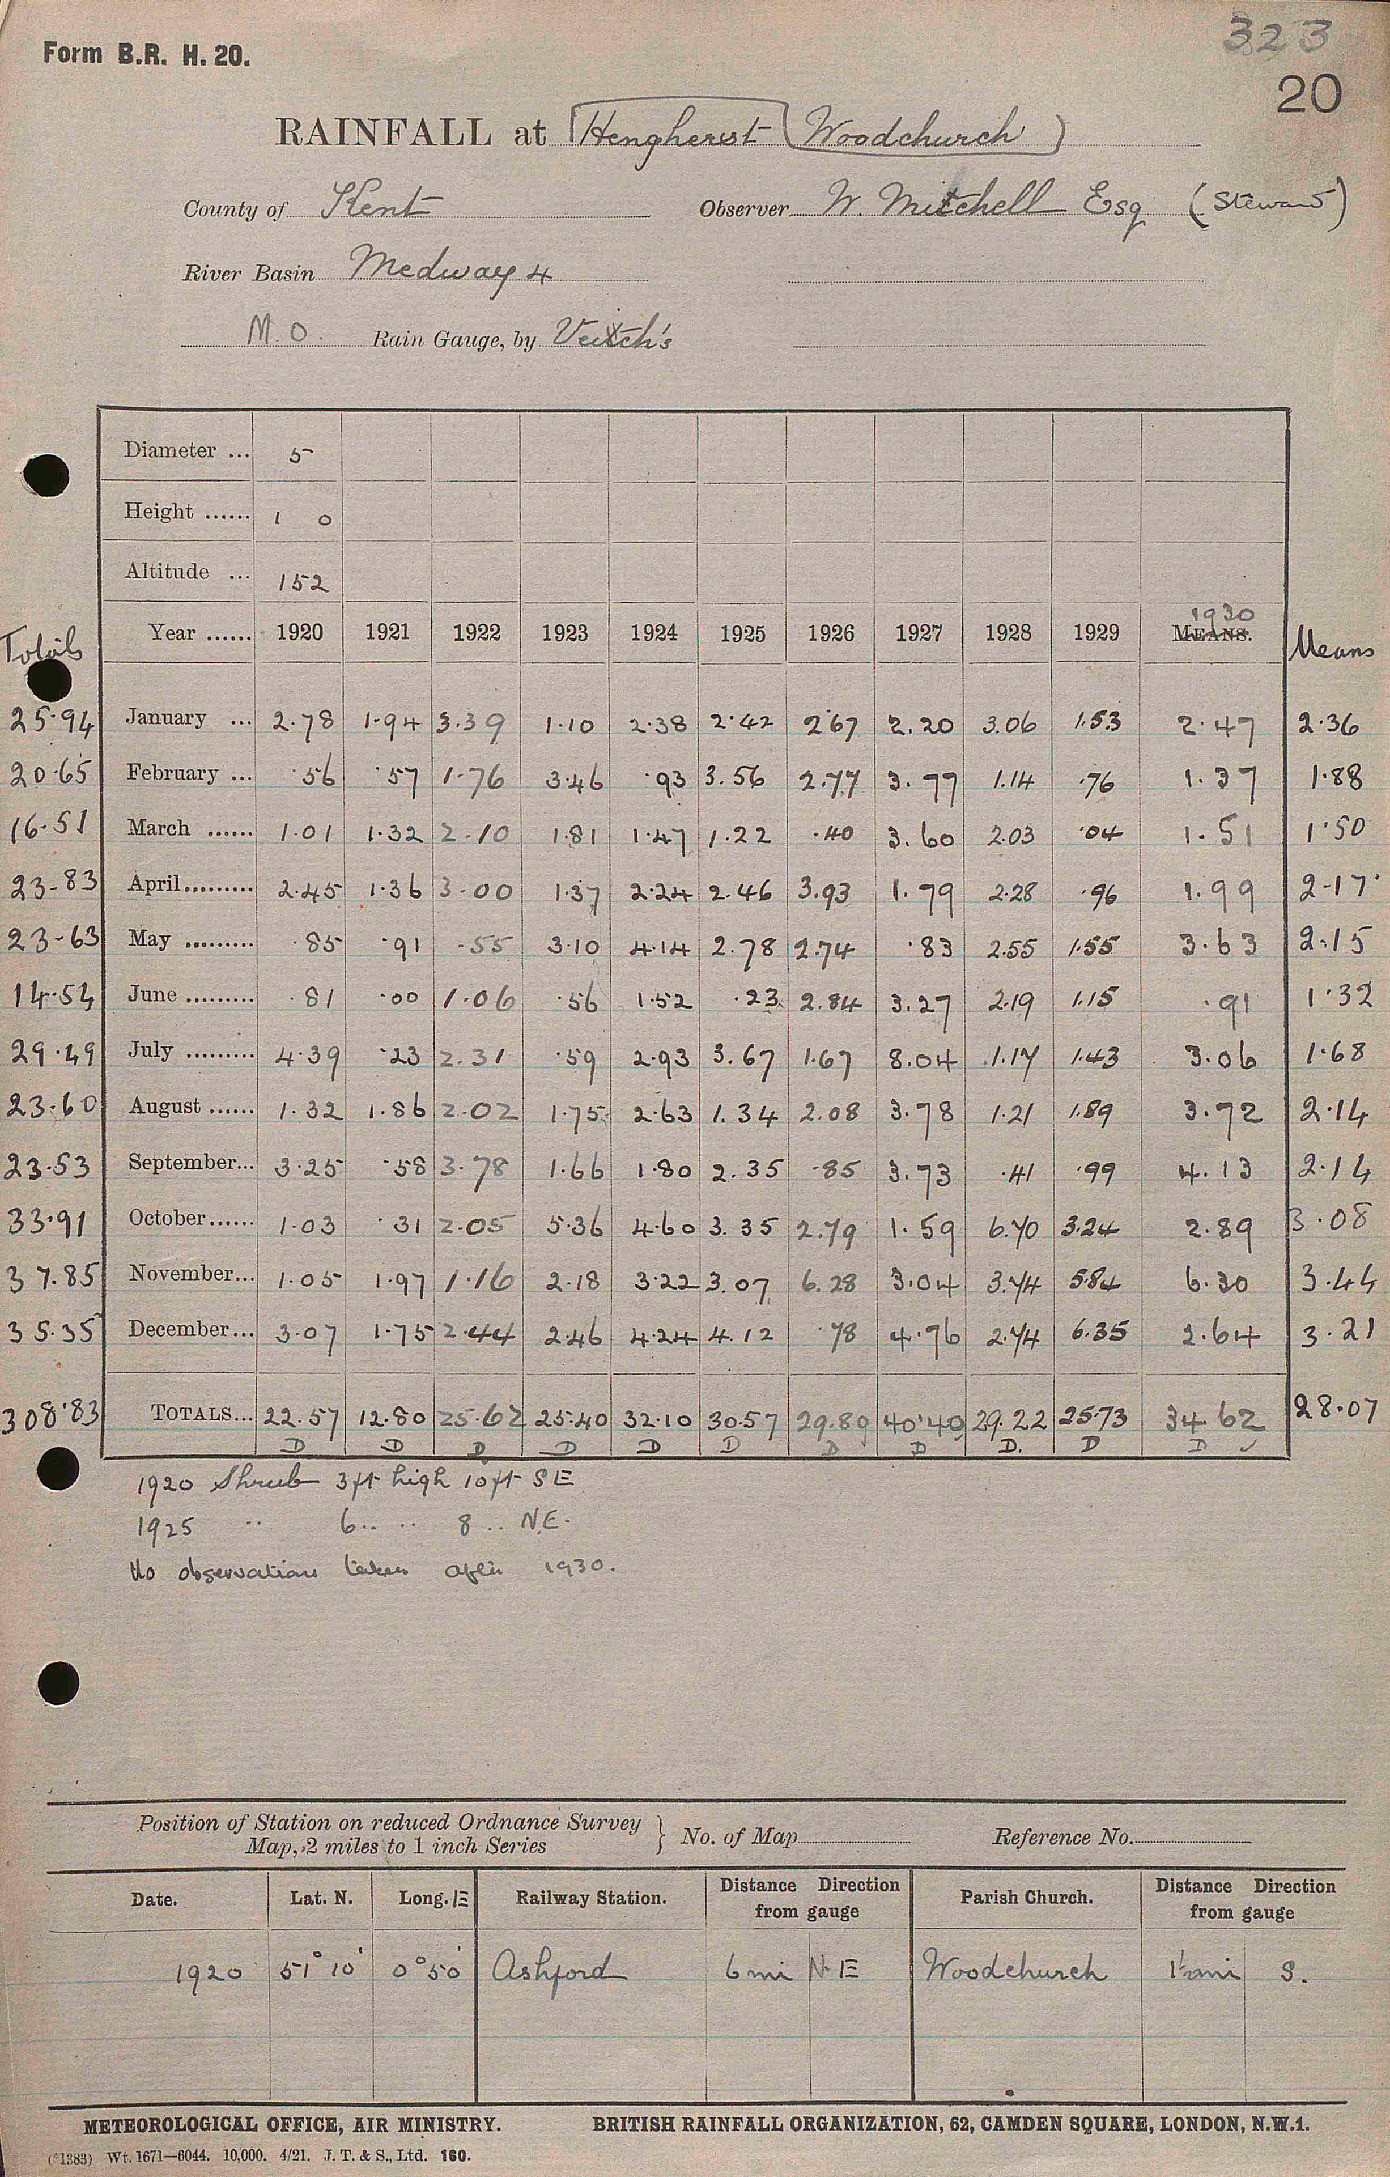 323
Form B.R. H. 20.
20
RAINFALL at Hengherst (Woodchurch)
County of Kent Observer W. Mitchell Esq (Steward)
River Basin Medway 4
M.O. Rain Gauge, by Veitch's
Diameter ... 5
Height ...... 1 0
Altitude ... 152
1930
Totals Year ...... 1920 1921 1922 1923 1924 1925 1926 1927 1928 1929 MEANS. Means
25.94 January ... 2.78 1.94 3.39 1.10 2.38 2.42 2.67 2.20 3.06 1.53 2.47 2.36
20.65 February ... .56 .57 1.76 3.46 .93 3.56 2.77 3.77 1.14 .76 1.37 1.88
16.51 March ...... 1.01 1.32 2.10 1.81 1.47 1.22 .40 3.60 2.03 .04 1.51 1.50
23.83 April......... 2.45 1.36 3.00 1.37 2.24 2.46 3.93 1.79 2.28 .96 1.99 2.17
23.63 May ......... .85 .91 .55 3.10 4.14 2.78 2.74 .83 2.55 1.55 3.63 2.15
14.54 June ......... .81 .00 1.06 .56 1.52 .23 2.84 3.27 2.19 1.15 .91 1.32
29.49 July ......... 4.39 .23 2.31 .59 2.93 3.67 1.67 8.04 1.17 1.43 3.06 1.68
23.60 August ...... 1.32 1.86 2.02 1.75 2.63 1.34 2.08 3.78 1.21 1.89 3.72 2.14
23.53 September... 3.25 .58 3.78 1.66 1.80 2.35 .85 3.73 .41 .99 4.13 2.14
33.91 October...... 1.03 .31 2.05 5.36 4.60 3.35 2.79 1.59 6.70 3.24 2.89 3.08
37.85 November... 1.05 1.97 1.16 2.18 3.22 3.07 6.28 3.04 3.74 5.84 6.30 3.44
35.35 December... 3.07 1.75 2.44 2.46 4.24 4.12 .78 4.76 2.74 6.35 2.64 3.21
308.83 TOTALS... 22.57 12.80 25.62 25.40 32.10 30.57 29.80 40.40 29.22 25.73 34.62 28.07
D D D D D D D D D. D D ✓
1920 Shrub 3ft high 10ft SE
1925 " 6 .. .. 8 .. N.E.
No observations taken after 1930.
Position of Station on reduced Ordnance Survey
Map, 2 miles to 1 inch Series } No. of Map Reference No.
Date. Lat. N. Long. E Railway Station. Distance Direction from gauge Parish Church. Distance Direction from gauge
1920 51° 10' 0° 50' Ashford 6 mi N E Woodchurch 1½ mi S.
METEOROLOGICAL OFFICE, AIR MINISTRY. BRITISH RAINFALL ORGANIZATION, 62, CAMDEN SQUARE, LONDON, N.W.1.
(*1383) Wt. 1671—6044. 10,000. 4/21. J. T. & S., Ltd. 160.